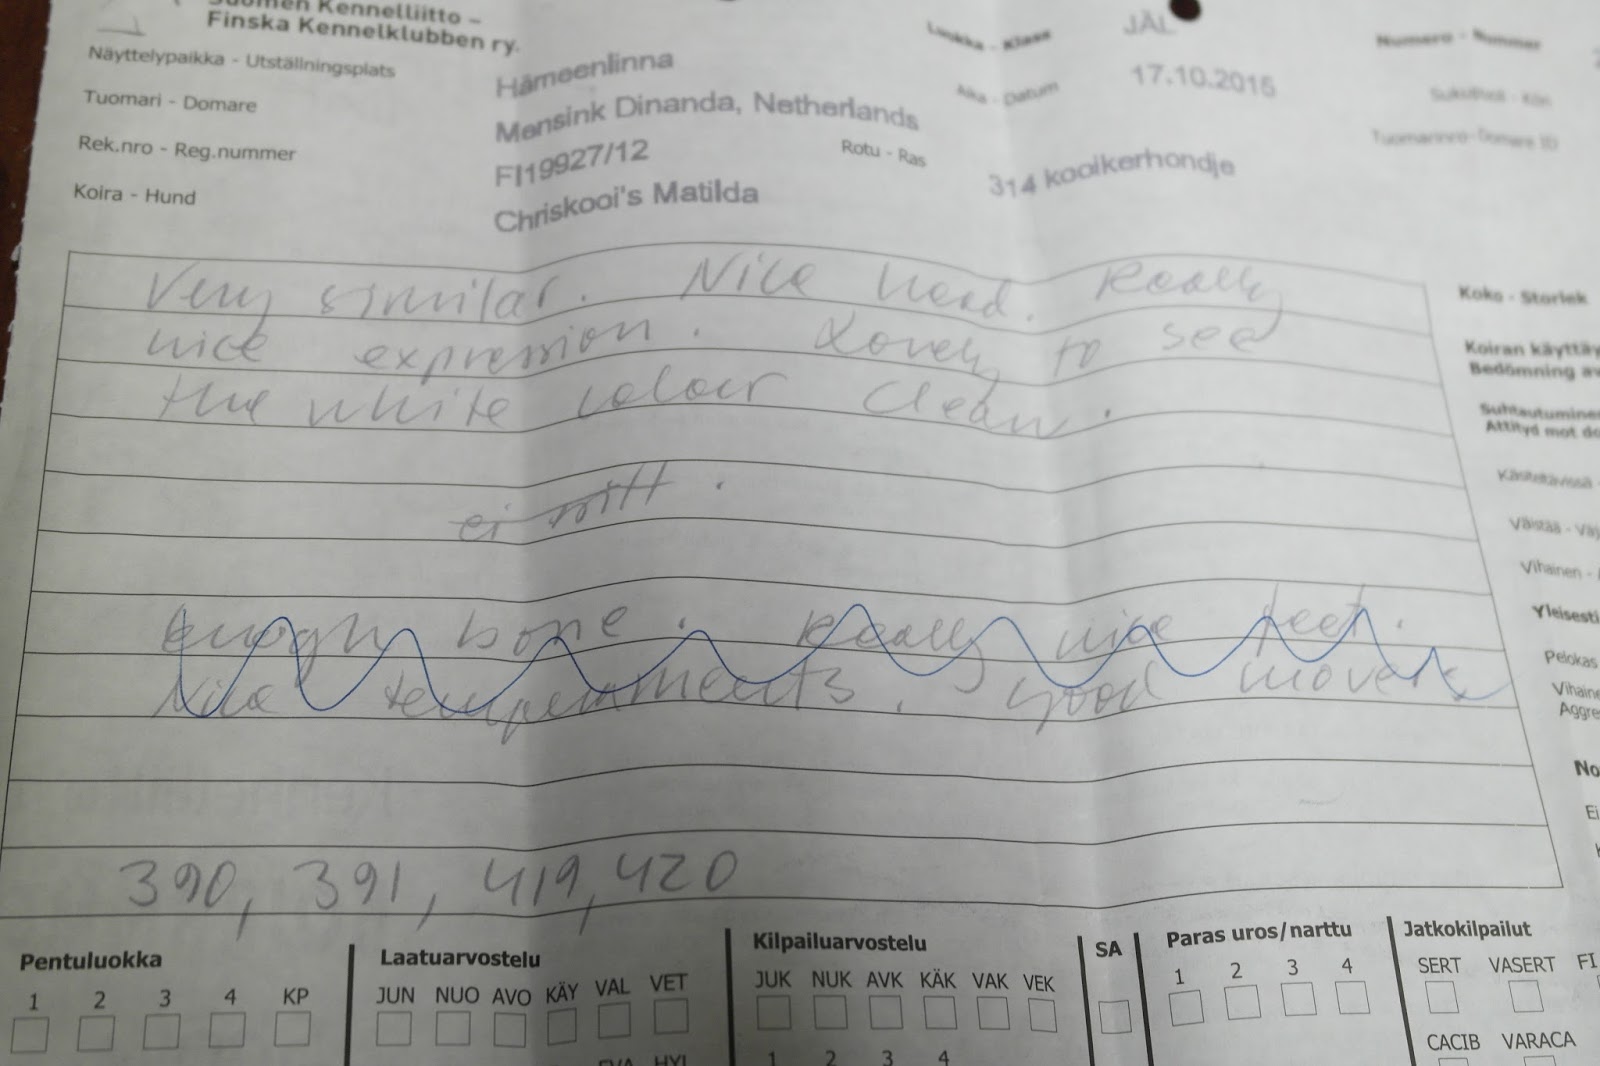 Suomen Kennelliitto –
Finska Kennelklubben ry.
Näyttelypaikka - Utställningsplats
Hämeenlinna
Luokka - Klass
JÄL
Numero - Nummer
Tuomari - Domare
Mensink Dinanda, Netherlands
Aika - Datum
17.10.2015
Sukupuoli - Kön
Rek.nro - Reg.nummer
FI19927/12
Rotu - Ras
314 kooikerhondje
Tuomarinro - Domare ID
Koira - Hund
Chriskooi's Matilda
Very similar. Nice head. Really
nice expression. Lovely to see
the white colour clean.
ei
Enough bone. Really nice feet.
Nice temperamments. Good movers
390, 391, 419, 420
Koko - Storlek
Koiran käyttäy
Bedömning av
Suhtautuminen
Attityd mot do
Käsiteltävissä -
Väistää - Väj
Vihainen - A
Yleisesti
Pelokas
Vihaine
Aggre
No
Ei
Pentuluokka
1 2 3 4 KP
Laatuarvostelu
JUN NUO AVO KÄY VAL VET
EVA HYL
Kilpailuarvostelu
JUK NUK AVK KÄK VAK VEK
1 2 3 4
SA
Paras uros/narttu
1 2 3 4
Jatkokilpailut
SERT VASERT FI
CACIB VARACA